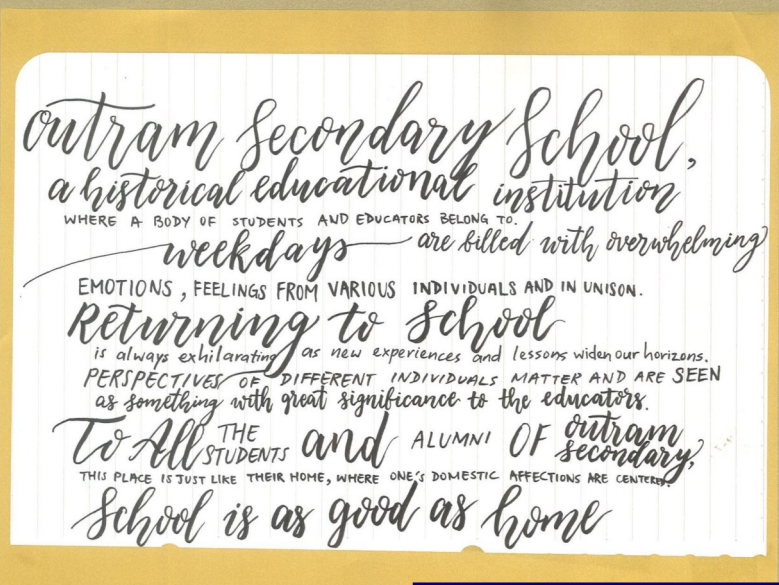 outram Secondary School,
a historical educational institution
WHERE A BODY OF STUDENTS AND EDUCATORS BELONG TO.
weekdays are filled with overwhelming
EMOTIONS, FEELINGS FROM VARIOUS INDIVIDUALS AND IN UNISON.
Returning to School
is always exhilarating as new experiences and lessons widen our horizons.
PERSPECTIVES OF DIFFERENT INDIVIDUALS MATTER AND ARE SEEN
as something with great significance to the educators.
To All THE STUDENTS and ALUMNI OF outram secondary,
THIS PLACE IS JUST LIKE THEIR HOME, WHERE ONE'S DOMESTIC AFFECTIONS ARE CENTERED.
School is as good as home